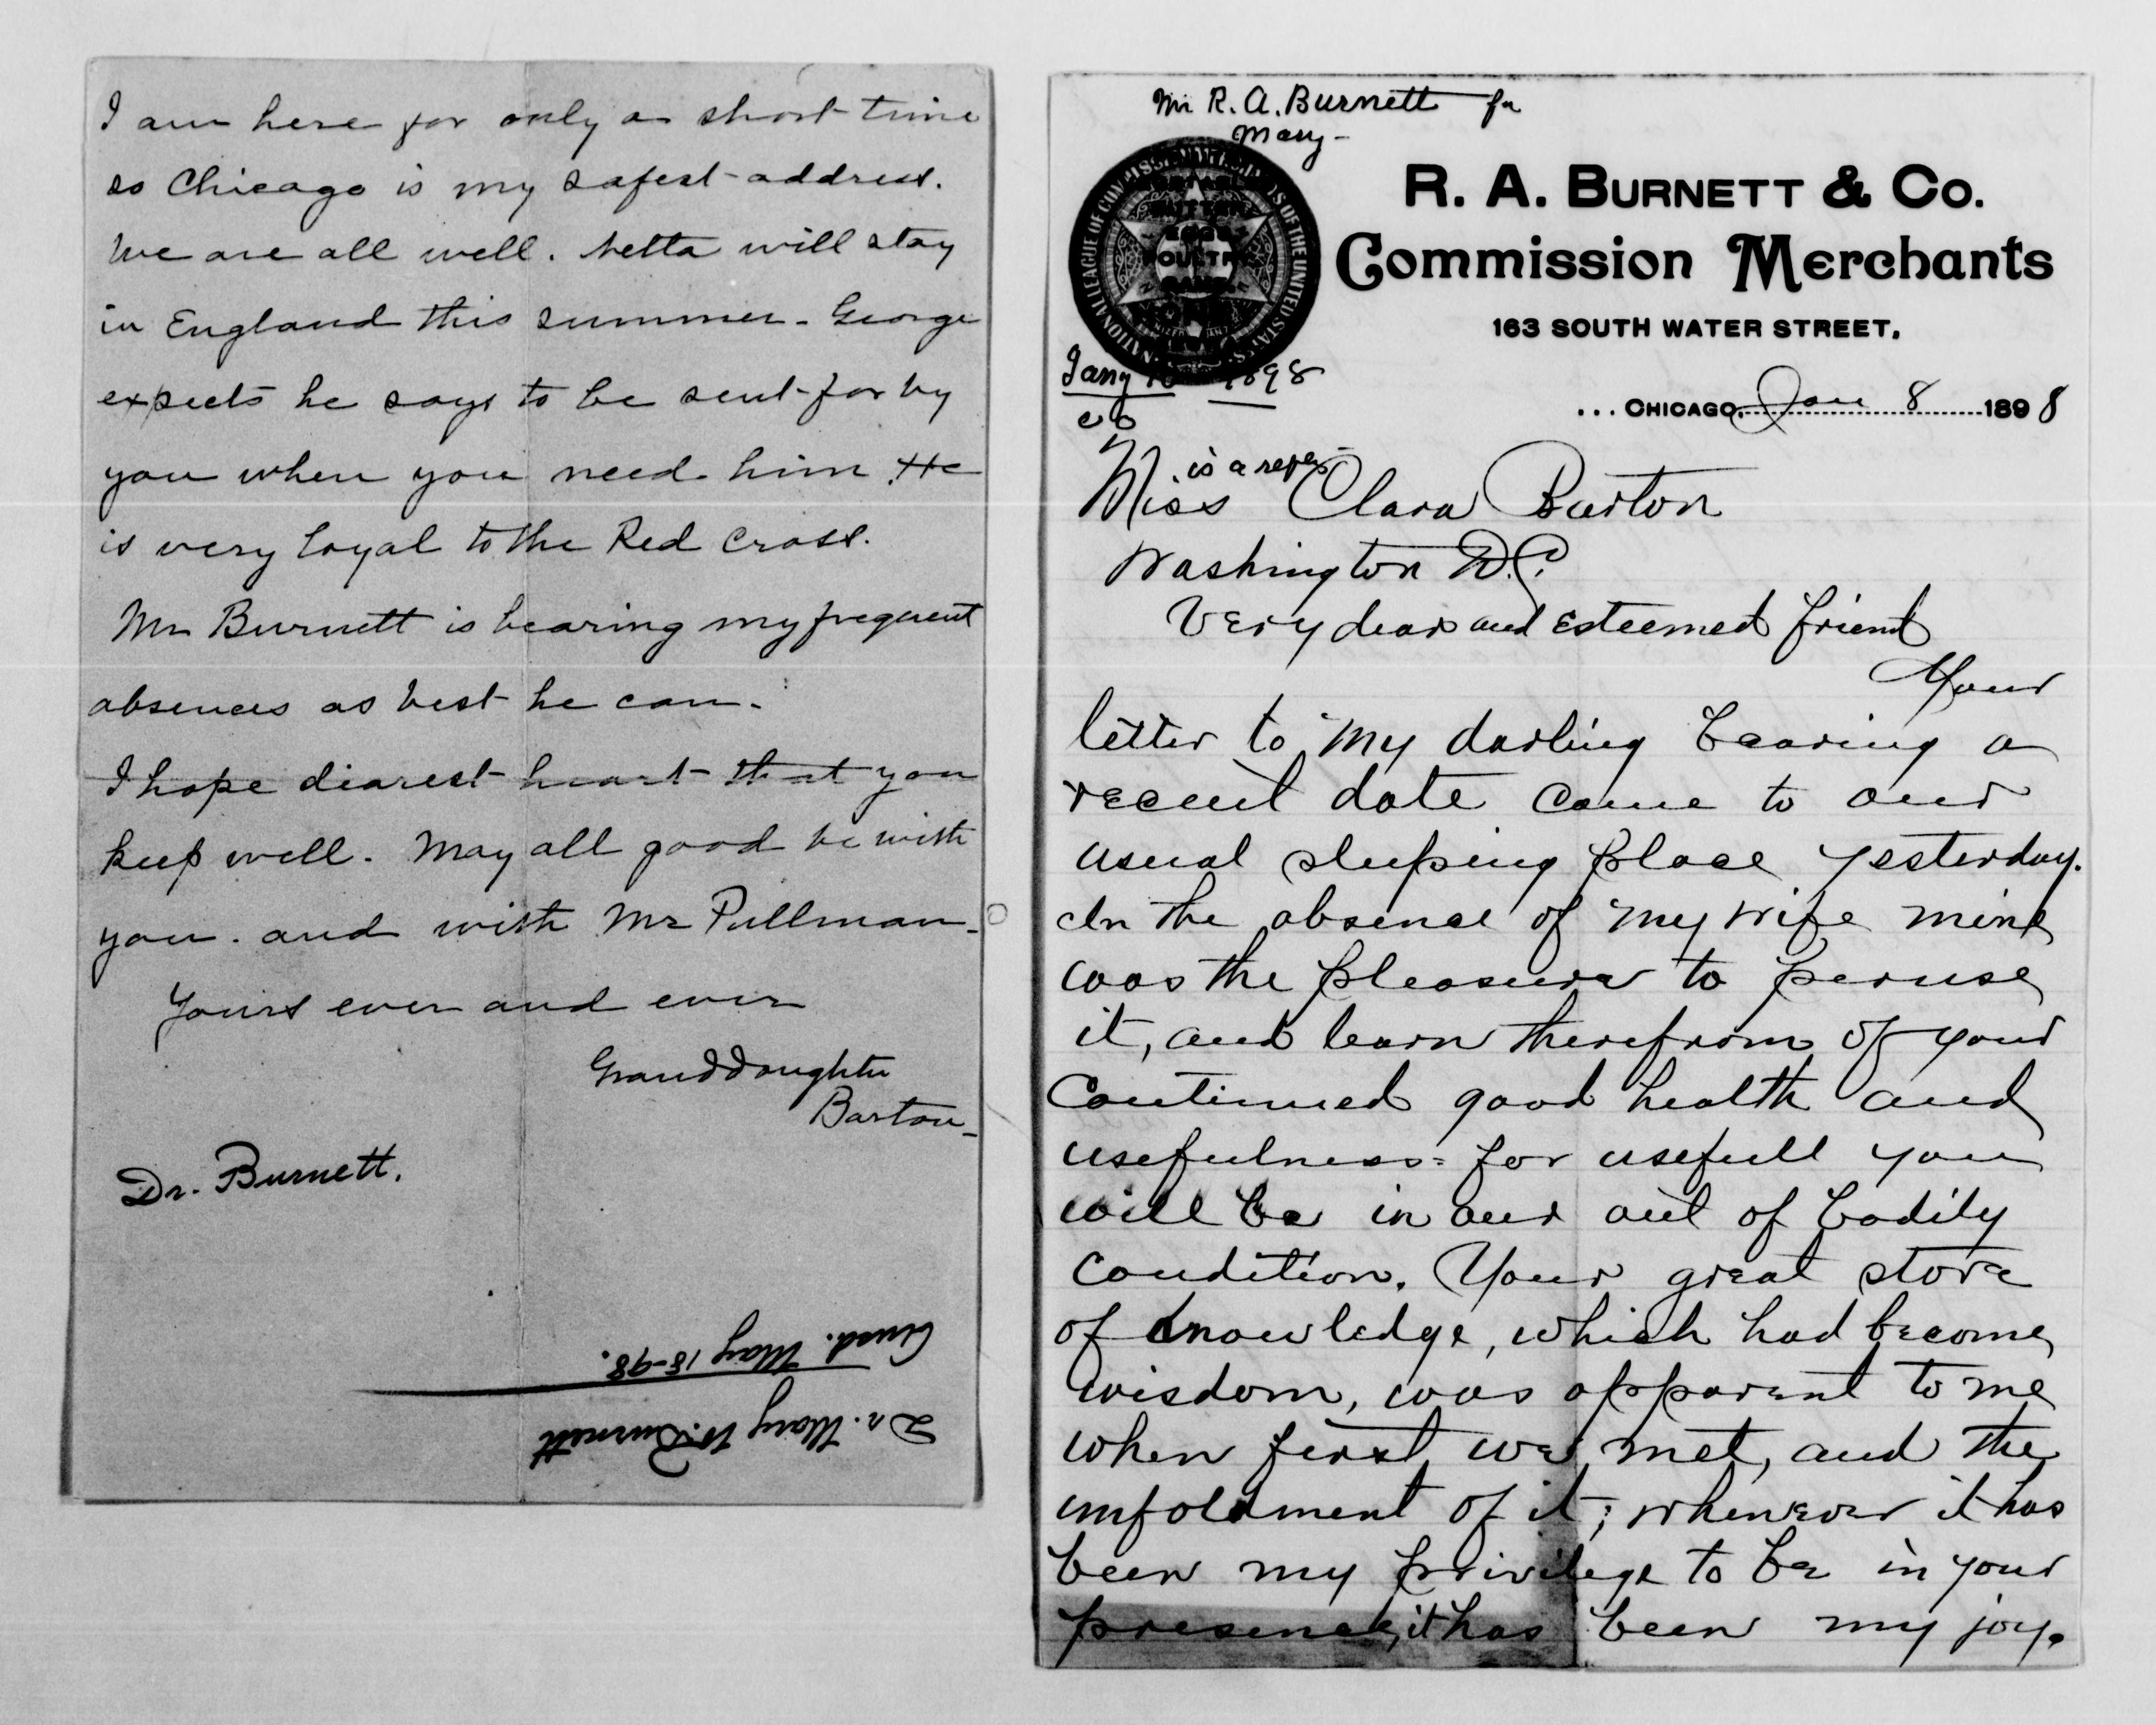 I am here for only a short time
so Chicago is my safest address.
We are all well. Netta will stay
in England this summer. George
expects he says to be sent for by
you when you need him. He
is very loyal to the Red Cross.
Mr Burnett is bearing my frequent
absences as best he can.
I hope dearest heart that you
keep well. May all good be with
you. and with Mr Pullman.
Yours ever and ever
Granddaughter
Barton
Dr. Burnett.
Ansd. May 18-98.
Dr. Mary W. Burnett
Mr R. A. Burnett for
Mary-
NATIONAL LEAGUE OF COMMISSION MERCHANTS OF THE UNITED STATES
BUTTER
EGGS
POULTRY
GAME
R. A. BURNETT & CO.
Commission Merchants
163 SOUTH WATER STREET.
Jany 10 1898
... CHICAGO, Jan 8 1898
is a
Miss Clara Barton
Washington D.C.
Very dear and esteemed friend
Your
letter to my darling bearing a
recent date came to our
usual sleeping place yesterday.
In the absence of my wife mine
was the pleasure to peruse
it, and learn therefrom of your
Continued good health and
usefulness- for usefull you
will be in and out of bodily
condition. Your great store
of knowledge, which had become
wisdom, was apparent to me
when first we met, and the
unfoldment of it; whenever it has
been my privilege to be in your
presence, it has been my joy.